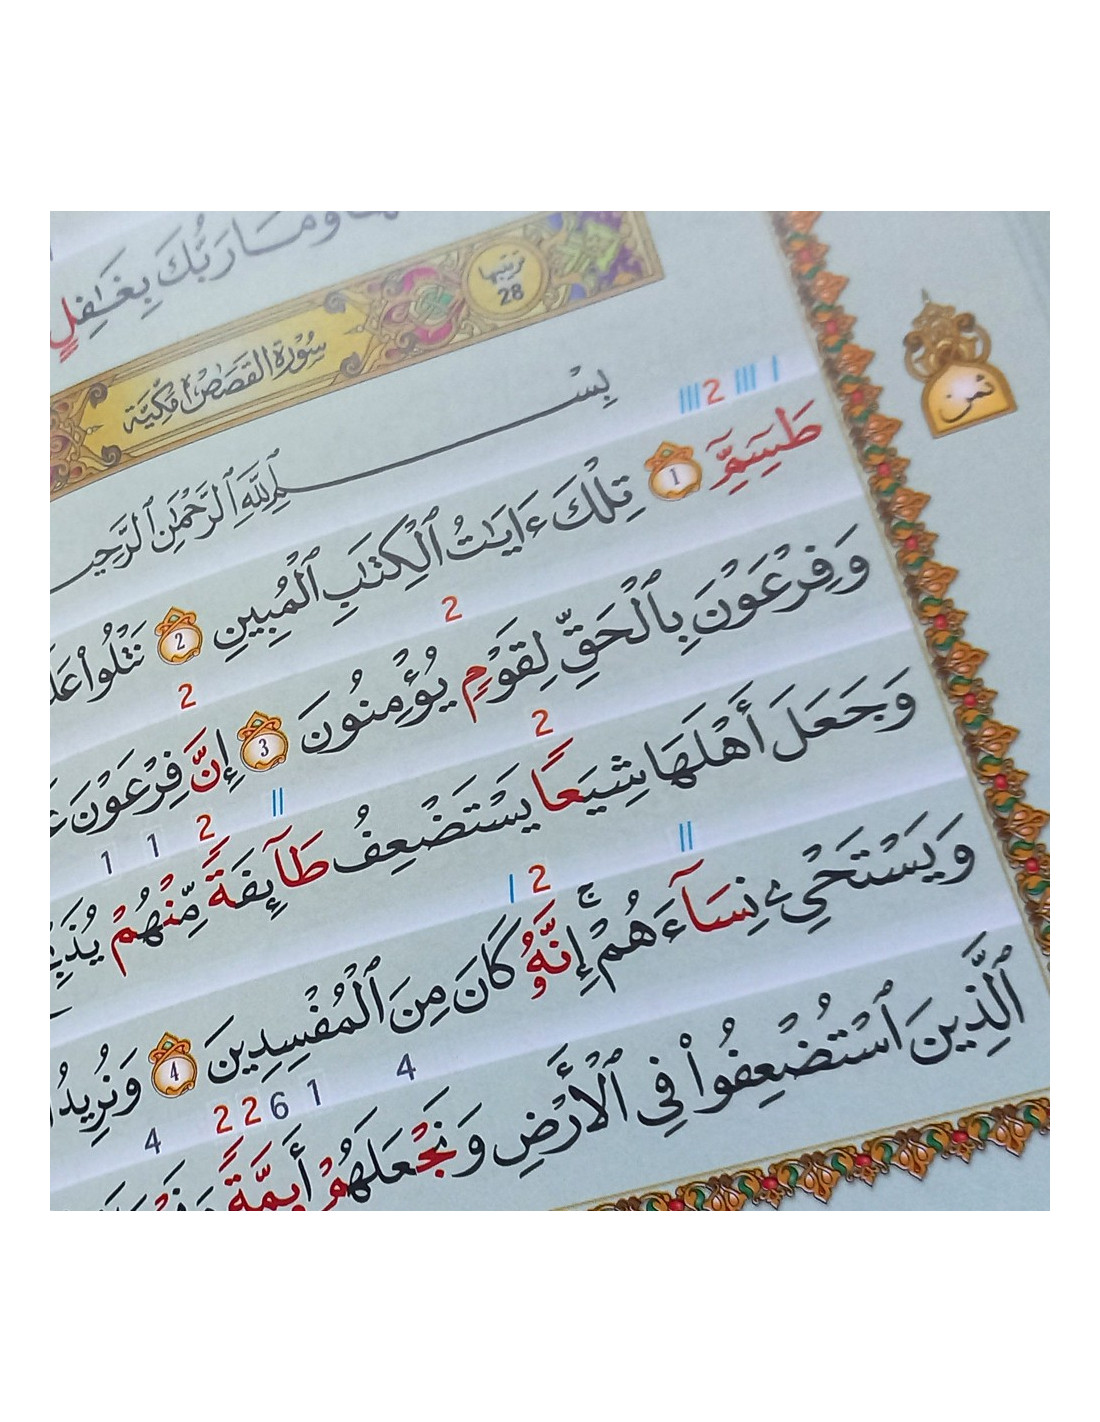 وَمَا رَبُّكَ بِغَٰفِلٍ
ترتيبها
28
سُورَةُ الْقَصَصِ مَكِّيَّة
ثمن
بِسْمِ ٱللَّهِ ٱلرَّحْمَٰنِ ٱلرَّحِي
III 2 III I
طَسِٓمِّٓ 1 تِلْكَ ءَايَٰتُ ٱلْكِتَٰبِ ٱلْمُبِينِ 2 نَتْلُوا۟ عَلَ
2 2
وَفِرْعَوْنَ بِٱلْحَقِّ لِقَوْمٍ يُؤْمِنُونَ 3 إِنَّ فِرْعَوْنَ عَ
2 II 2 1 1
وَجَعَلَ أَهْلَهَا شِيَعًا يَسْتَضْعِفُ طَآئِفَةً مِّنْهُمْ يُذَبِّ
II 2 I
وَيَسْتَحْىِۦ نِسَآءَهُمْ ۚ إِنَّهُۥ كَانَ مِنَ ٱلْمُفْسِدِينَ 4 وَنُرِيدُ
4 1 6 2 2 4
ٱلَّذِينَ ٱسْتُضْعِفُوا۟ فِى ٱلْأَرْضِ وَنَجْعَلَهُمْ أَئِمَّةً